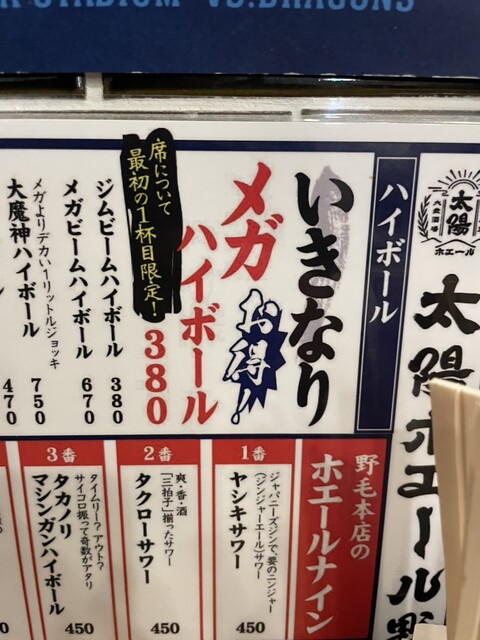 STADIUM VS.DRAGONS
太陽
大衆酒場
ホエール
太陽ホエール野
ハイボール
いきなり
メガ
ハイボール
お得!
380
席について
最初の1杯目限定!
ジムビームハイボール 380
メガビームハイボール 670
メガよりデカい1リットルジョッキ
大魔神ハイボール 750
470
野毛本店の
ホエールナイン
1番
ジャパニーズジンで、要のニンジャー
(ジンジャーエール)サワー
ヤシキサワー
450
2番
爽・香・酒
「三拍子」揃ったサワー
タクローサワー
450
3番
タイムリー?アウト?
サイコロ振って奇数がアタリ
タカノリ
マシンガンハイボール
450